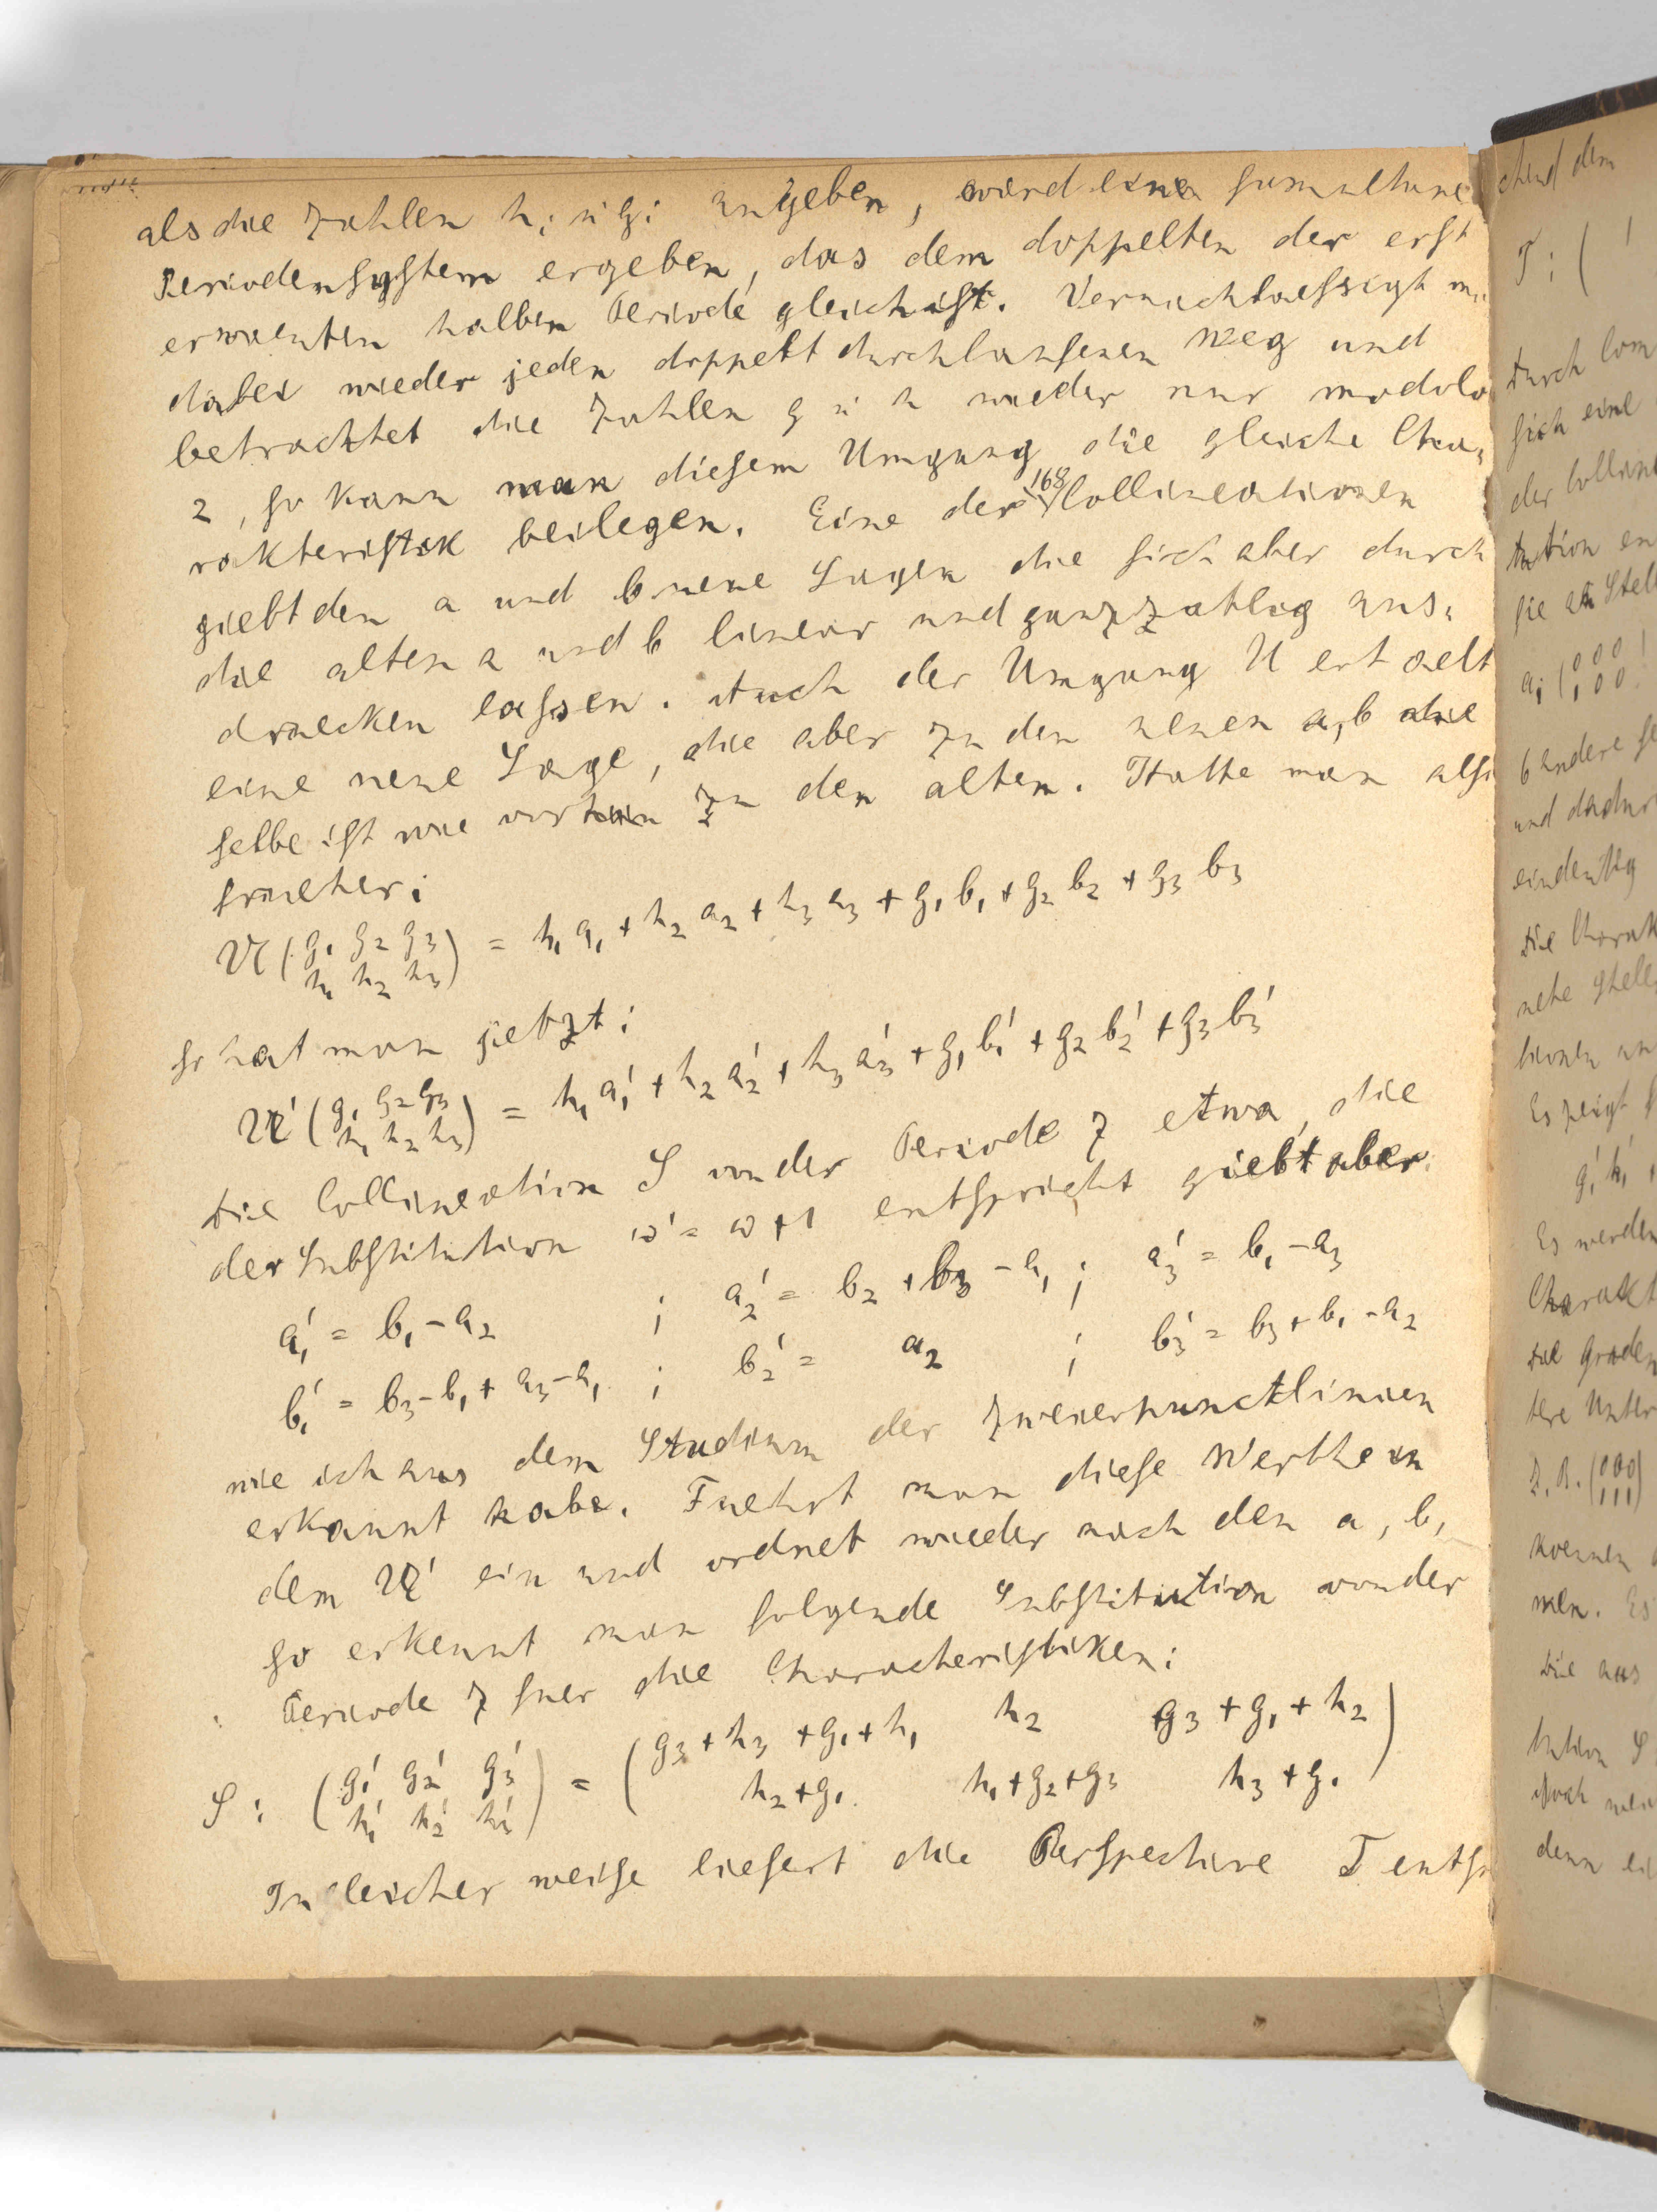 als die Zahlen h; u g; angeben, wird eine simultane
Periodensystem ergeben, das dem doppelten der erst
erwaenten halben Periode gleich ist. Vernachlaessigt m
dabei wieder jeden doppelt durchlaufenen Weg und
betrachtet die Zahlen g u h wieder nur modulo
2, so kann man diesem Umgang die gleiche Cha,
rakteristik beilegen. Eine der 168 Collineationen
giebt den a und b neue Lagen die sich aber durch
die alten a und b linear und ganzzahlig aus,
druecken lassen. Auch der Umgang U erhaelt
eine neue Lage, die aber zu den neuen a, b die
selbe ist wie vorhin zu den alten. Hatte man also
frueher:
U (g1 g2 g3 = h1 a1 + h2 a2 + h3 a3 + g1 b1 + g2 b2 + g3 b3
h1 h2 h3)
so hat man jetzt:
U' (g1 g2 g3 = h1 a1' + h2 a2' + h3 a3' + g1 b1' + g2 b2' + g3 b3'
h1 h2 h3)
Die Collineation S von der Periode 7 etwa, die
der Substitution ω' = ω + 1 entspricht giebt aber:
a1' = b1 - a2 ; a2' = b2 + b3 - a1 ; a3' = b1 - a3
b1' = b3 - b1 + a3 - a1 ; b2' = a2 ; b3' = b3 + b1 - a2
wie ich aus dem Studium der Zweierpunctlinien
erkannt habe. Fuehrt man diese Werthe in
dem U' ein und ordnet wieder nach den a, b,
so erkennt man folgende Substitution von der
Periode 7 fuer die Characteristiken:
S: (g1' g2' g3' = (g3 + h3 + g1 + h1 h2 g3 + g1 + h2)
h1' h2' h3') h2 + g1 h1 + g2 + g3 h3 + g1
In gleicher weise liefert die Perspective T entsp
chend dem
T: (1
Durch Com
sich eine
der Collin
tution en
sie an Stell
a; (000
100
b andere
und dadur
eindeutig
Die Charak
nete
Es zeigt
g1' h1'
Es werden
Charakt
Die Graden
tere Unter
z.B. (000
111)
koennen
men. Es
Die aus
tution S
Doch
denn ei